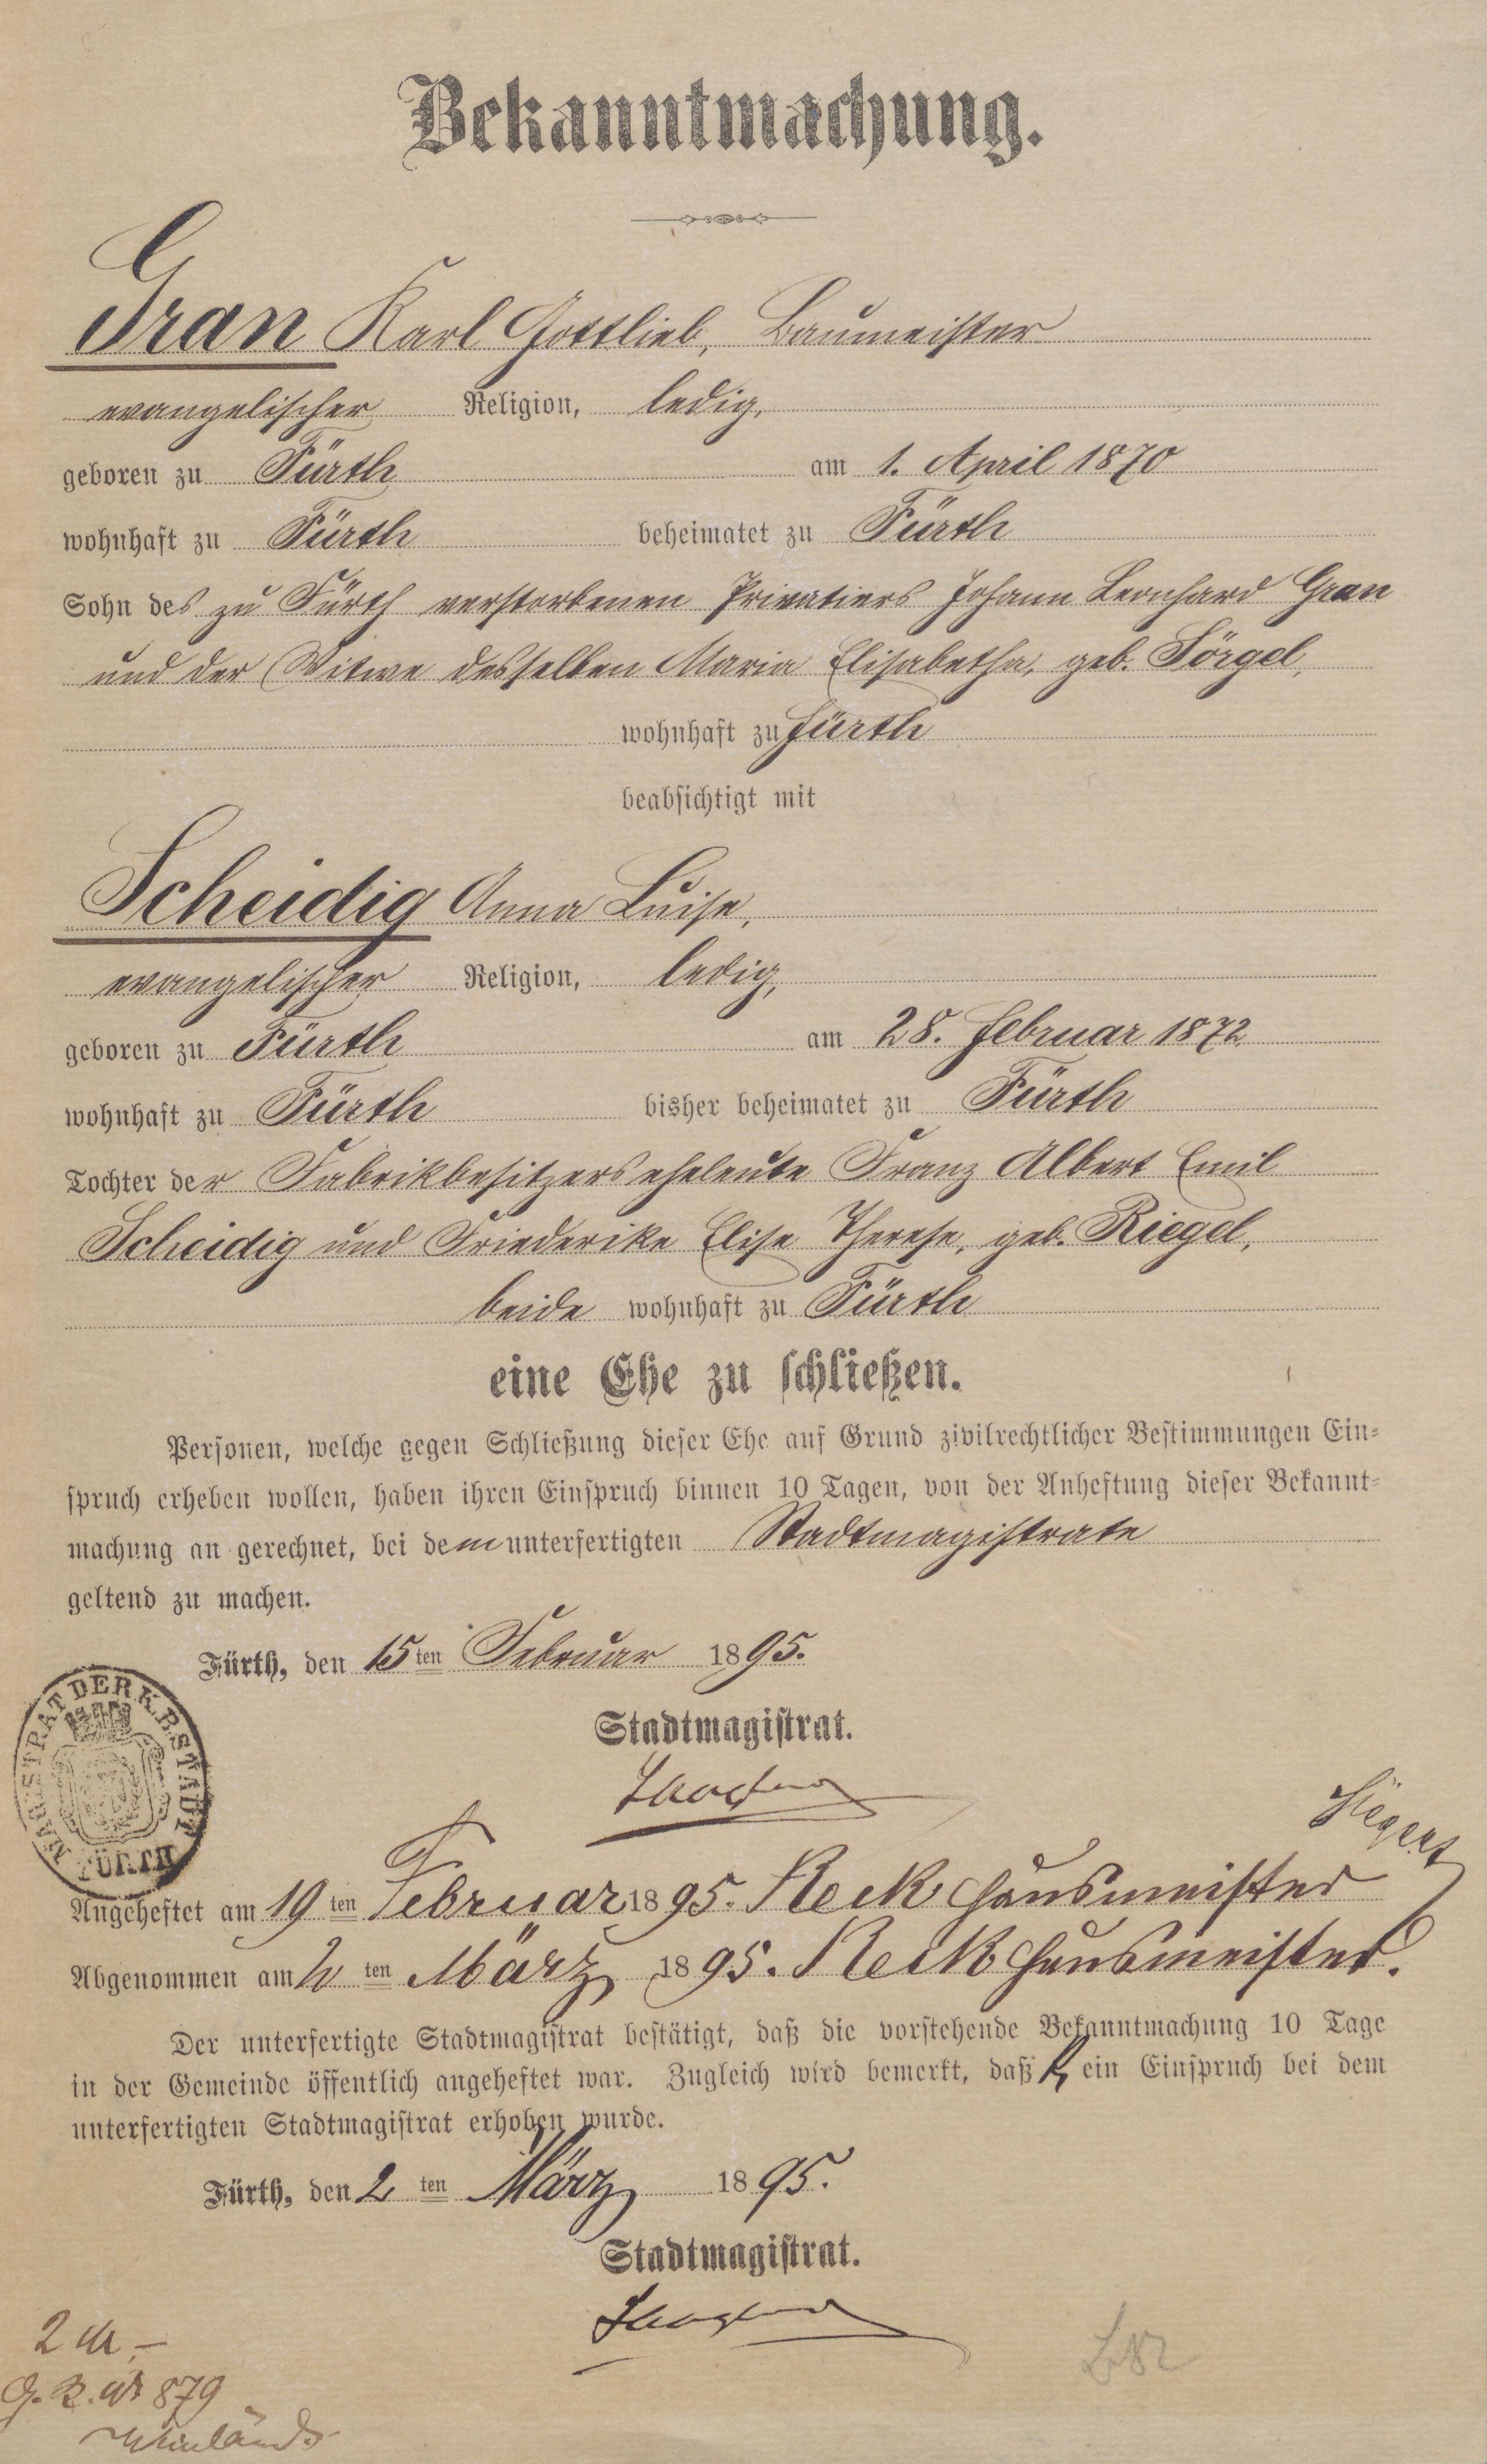 Bekanntmachung.
Gran Karl Gottlieb, Baumeister
evangelischer Religion, ledig,
geboren zu Fürth am 1. April 1870
wohnhaft zu Fürth beheimatet zu Fürth
Sohn des zu Fürth verstorbenen Privatiers Johann Leonhard Gran
und der Witwe desselben Maria Elisabetha, geb. Sörgel,
wohnhaft zu Fürth
beabsichtigt mit
Scheidig Anna Luise,
evangelischer Religion, ledig,
geboren zu Fürth am 28. Februar 1872
wohnhaft zu Fürth bisher beheimatet zu Fürth
Tochter der Fabrikbesitzerseheleute Franz Albert Emil
Scheidig und Friederike Elise Therese, geb. Riegel,
beide wohnhaft zu Fürth
eine Ehe zu schließen.
Personen, welche gegen Schließung dieser Ehe auf Grund zivilrechtlicher Bestimmungen Ein-
spruch erheben wollen, haben ihren Einspruch binnen 10 Tagen, von der Anheftung dieser Bekannt-
machung an gerechnet, bei dem unterfertigten Stadtmagistrate
geltend zu machen.
Fürth, den 15ten Februar 1895.
MAGISTRAT DER K.B. STADT FÜRTH
Stadtmagistrat.
Angeheftet am 19ten Februar 1895. Reck Hausmeister
Abgenommen am 2ten März 1895. Reck Hausmeister.
Der unterfertigte Stadtmagistrat bestätigt, daß die vorstehende Bekanntmachung 10 Tage
in der Gemeinde öffentlich angeheftet war. Zugleich wird bemerkt, daß kein Einspruch bei dem
unterfertigten Stadtmagistrat erhoben wurde.
Fürth, den 2ten März 1895.
Stadtmagistrat.
2 M. –
G. R. No 879